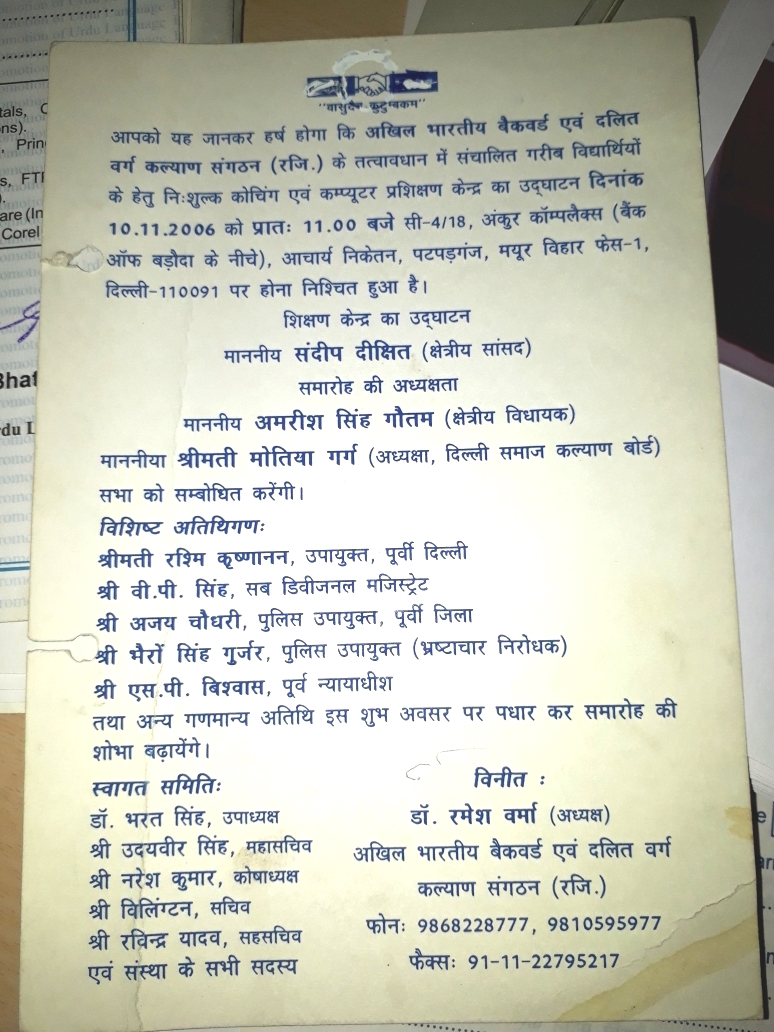 "वासुदैव-कुटुम्बकम"
आपको यह जानकर हर्ष होगा कि अखिल भारतीय बैकवर्ड एवं दलित
वर्ग कल्याण संगठन (रजि.) के तत्वावधान में संचालित गरीब विद्यार्थियों
के हेतु निःशुल्क कोचिंग एवं कम्प्यूटर प्रशिक्षण केन्द्र का उद्घाटन दिनांक
10.11.2006 को प्रातः 11.00 बजे सी-4/18, अंकुर कॉम्पलैक्स (बैंक
ऑफ बड़ौदा के नीचे), आचार्य निकेतन, पटपड़गंज, मयूर विहार फेस-1,
दिल्ली-110091 पर होना निश्चित हुआ है।
शिक्षण केन्द्र का उद्घाटन
माननीय संदीप दीक्षित (क्षेत्रीय सांसद)
समारोह की अध्यक्षता
माननीय अमरीश सिंह गौतम (क्षेत्रीय विधायक)
माननीया श्रीमती मोतिया गर्ग (अध्यक्षा, दिल्ली समाज कल्याण बोर्ड)
सभा को सम्बोधित करेंगी।
विशिष्ट अतिथिगणः
श्रीमती रश्मि कृष्णानन, उपायुक्त, पूर्वी दिल्ली
श्री वी.पी. सिंह, सब डिवीजनल मजिस्ट्रेट
श्री अजय चौधरी, पुलिस उपायुक्त, पूर्वी जिला
श्री भैरों सिंह गुर्जर, पुलिस उपायुक्त (भ्रष्टाचार निरोधक)
श्री एस.पी. बिश्वास, पूर्व न्यायाधीश
तथा अन्य गणमान्य अतिथि इस शुभ अवसर पर पधार कर समारोह की
शोभा बढ़ायेंगे।
स्वागत समितिः
डॉ. भरत सिंह, उपाध्यक्ष
श्री उदयवीर सिंह, महासचिव
श्री नरेश कुमार, कोषाध्यक्ष
श्री विलिंग्टन, सचिव
श्री रविन्द्र यादव, सहसचिव
एवं संस्था के सभी सदस्य
विनीत :
डॉ. रमेश वर्मा (अध्यक्ष)
अखिल भारतीय बैकवर्ड एवं दलित वर्ग
कल्याण संगठन (रजि.)
फोनः 9868228777, 9810595977
फैक्सः 91-11-22795217